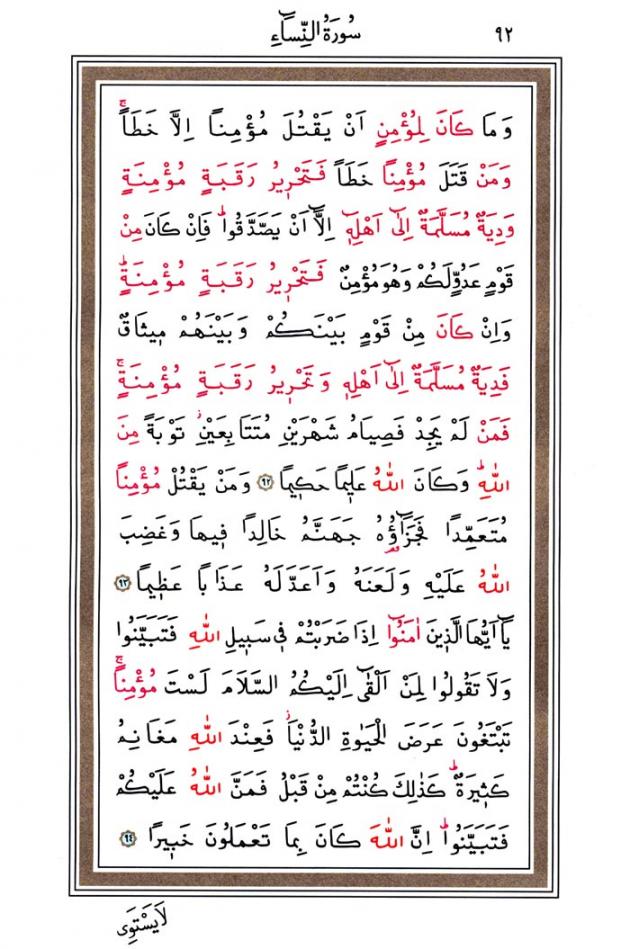 ٩٢
سُورَةُ النِّسَٓاءِ
وَمَا كَانَ لِمُؤْمِنٍ اَنْ يَقْتُلَ مُؤْمِنًا اِلَّا خَطَأًۚ
وَمَنْ قَتَلَ مُؤْمِنًا خَطَأً فَتَحْرٖيرُ رَقَبَةٍ مُؤْمِنَةٍ
وَدِيَةٌ مُسَلَّمَةٌ اِلٰٓى اَهْلِهٖٓ اِلَّٓا اَنْ يَصَّدَّقُواؕ فَاِنْ كَانَ مِنْ
قَوْمٍ عَدُوٍّ لَكُمْ وَهُوَ مُؤْمِنٌ فَتَحْرٖيرُ رَقَبَةٍ مُؤْمِنَةٍؕ
وَاِنْ كَانَ مِنْ قَوْمٍ بَيْنَكُمْ وَبَيْنَهُمْ مٖيثَاقٌ
فَدِيَةٌ مُسَلَّمَةٌ اِلٰٓى اَهْلِهٖ وَتَحْرٖيرُ رَقَبَةٍ مُؤْمِنَةٍۚ
فَمَنْ لَمْ يَجِدْ فَصِيَامُ شَهْرَيْنِ مُتَتَابِعَيْنِؗ تَوْبَةً مِنَ
اللّٰهِؕ وَكَانَ اللّٰهُ عَلٖيمًا حَكٖيمًا ﴿٩٢﴾ وَمَنْ يَقْتُلْ مُؤْمِنًا
مُتَعَمِّدًا فَجَزَٓاؤُ۬هُ جَهَنَّمُ خَالِدًا فٖيهَا وَغَضِبَ
اللّٰهُ عَلَيْهِ وَلَعَنَهُ وَاَعَدَّ لَهُ عَذَابًا عَظٖيمًا ﴿٩٣﴾
يَٓا اَيُّهَا الَّذٖينَ اٰمَنُٓوا اِذَا ضَرَبْتُمْ فٖي سَبٖيلِ اللّٰهِ فَتَبَيَّنُوا
وَلَا تَقُولُوا لِمَنْ اَلْقٰٓى اِلَيْكُمُ السَّلَامَ لَسْتَ مُؤْمِنًاۚ
تَبْتَغُونَ عَرَضَ الْحَيٰوةِ الدُّنْيَاؗ فَعِنْدَ اللّٰهِ مَغَانِمُ
كَثٖيرَةٌؕ كَذٰلِكَ كُنْتُمْ مِنْ قَبْلُ فَمَنَّ اللّٰهُ عَلَيْكُمْ
فَتَبَيَّنُواؕ اِنَّ اللّٰهَ كَانَ بِمَا تَعْمَلُونَ خَبٖيرًا ﴿٩٤﴾
لَا يَسْتَوِى